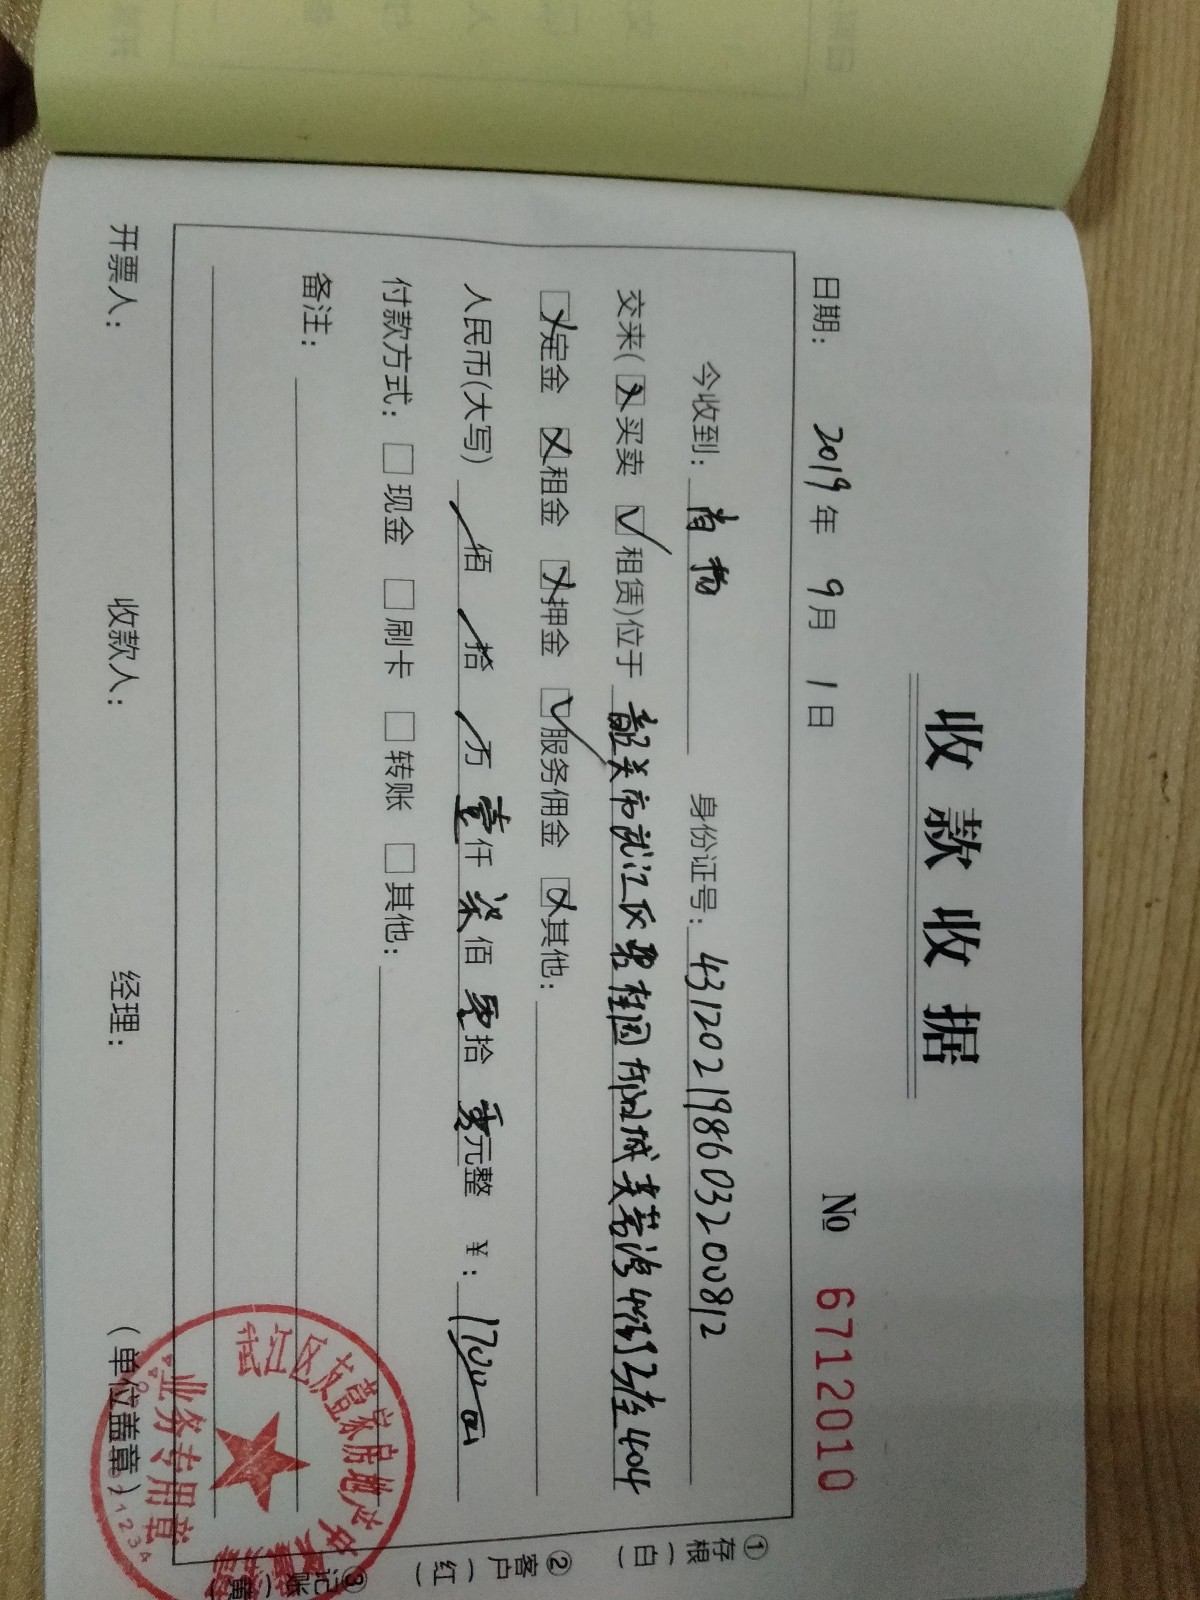 收款收据
№ 6712010
日期: 2019年 9月 1日
今收到: 肖扬 身份证号: 431202198603200812
交来(☒买卖 ☑租赁)位于 韶关市武江区碧桂园 城芙蓉湾 404
☒定金 ☒租金 ☒押金 ☑服务佣金 ☒其他:
人民币(大写) / 佰 / 拾 / 万 壹仟 柒佰 零拾 零元整 ¥: 1700
付款方式: □现金 □刷卡 □转账 □其他:
备注:
开票人: 收款人: 经理: (单位盖章)
①存根(白)
②客户(红)
③记账(黄)
武江区友壹家房地产
业务专用章